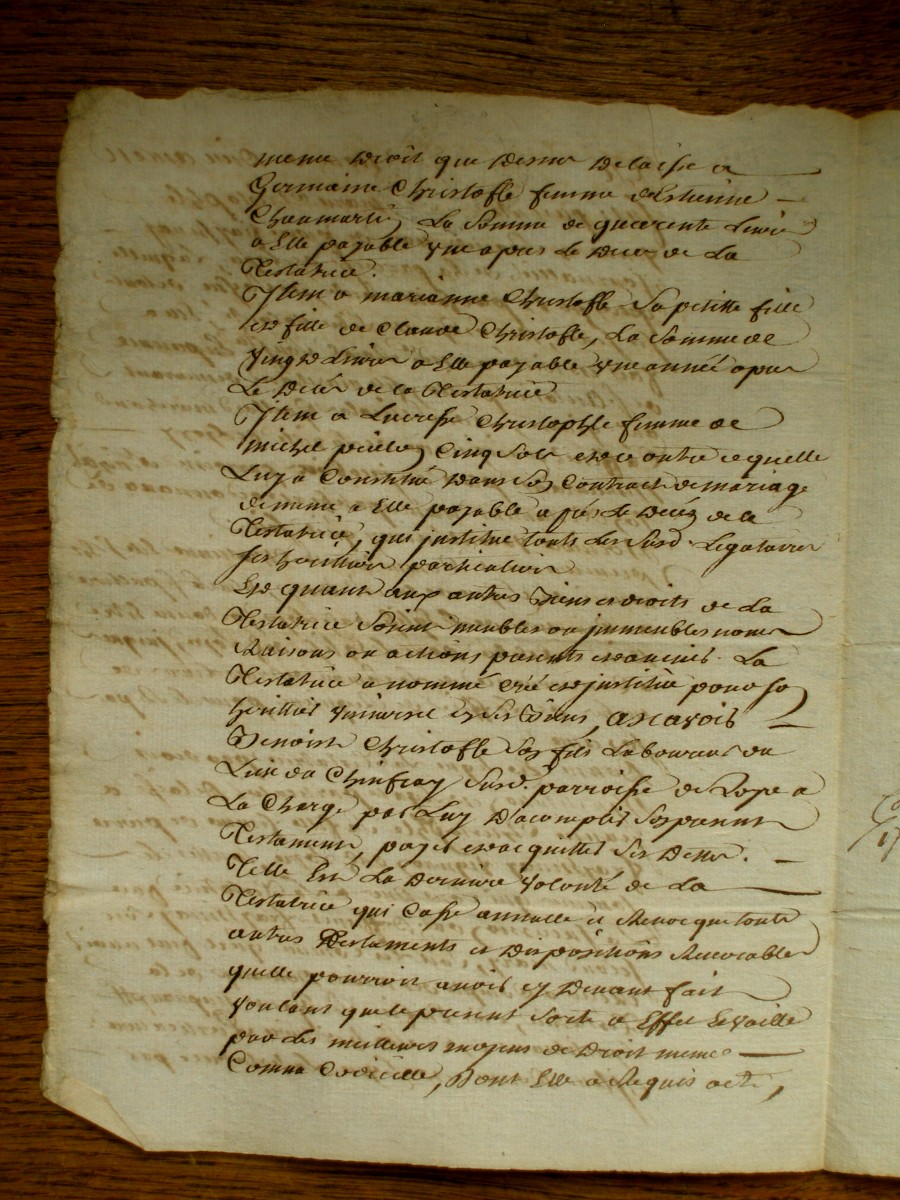 meme Droit que Dessus Delaisse a
Germaine Christofle femme d'Estienne
La Somme de quarente Livres
a Elle payable un apres le Deces de la
Testatrice.
Item a marianne Christofle Sa petitte fille
et fille de Claude Christofle, La Somme de
Vingt Livres a Elle payable une année apres
Le Décés de la Testatrice
Item a Lucresse Christophle femme de
michel Cinq Sols et ce outre ce quelle
Luy a Constitué Dans Son Contract de mariage
de meme a Elle payable aprés Le Décéz de la
Testatrice, qui justitue touts Les Susd. Legataires
ses heritiers particuliers
Et quant aux autres Biens et droits de La
Testatrice Soient meubles ou jmmeubles noms
Raisons ou actions presents et avenir. La
Testatrice a nommé créé et justitué pour son
heritier Universel en ses Biens, ascavoir
Benoist Christofle Son fils Laboureur du
Lieu du Susd. parroisse de Lope a
La Charge par Luy D'acomplir Son present
Testament, payer et acquitter Ses Dettes.
Telle Est La Derniere Volonté de La
Testatrice qui Casse annulle et Revocque touts
autres Testaments et Dispositions Revocables
quelle pourroit avoir cy Devant fait
Voulant que le present Sorte a Effet Et Vaille
par Les meilleurs moyens de Droit meme
Comme Codicille, Dont Elle a Requis acte,